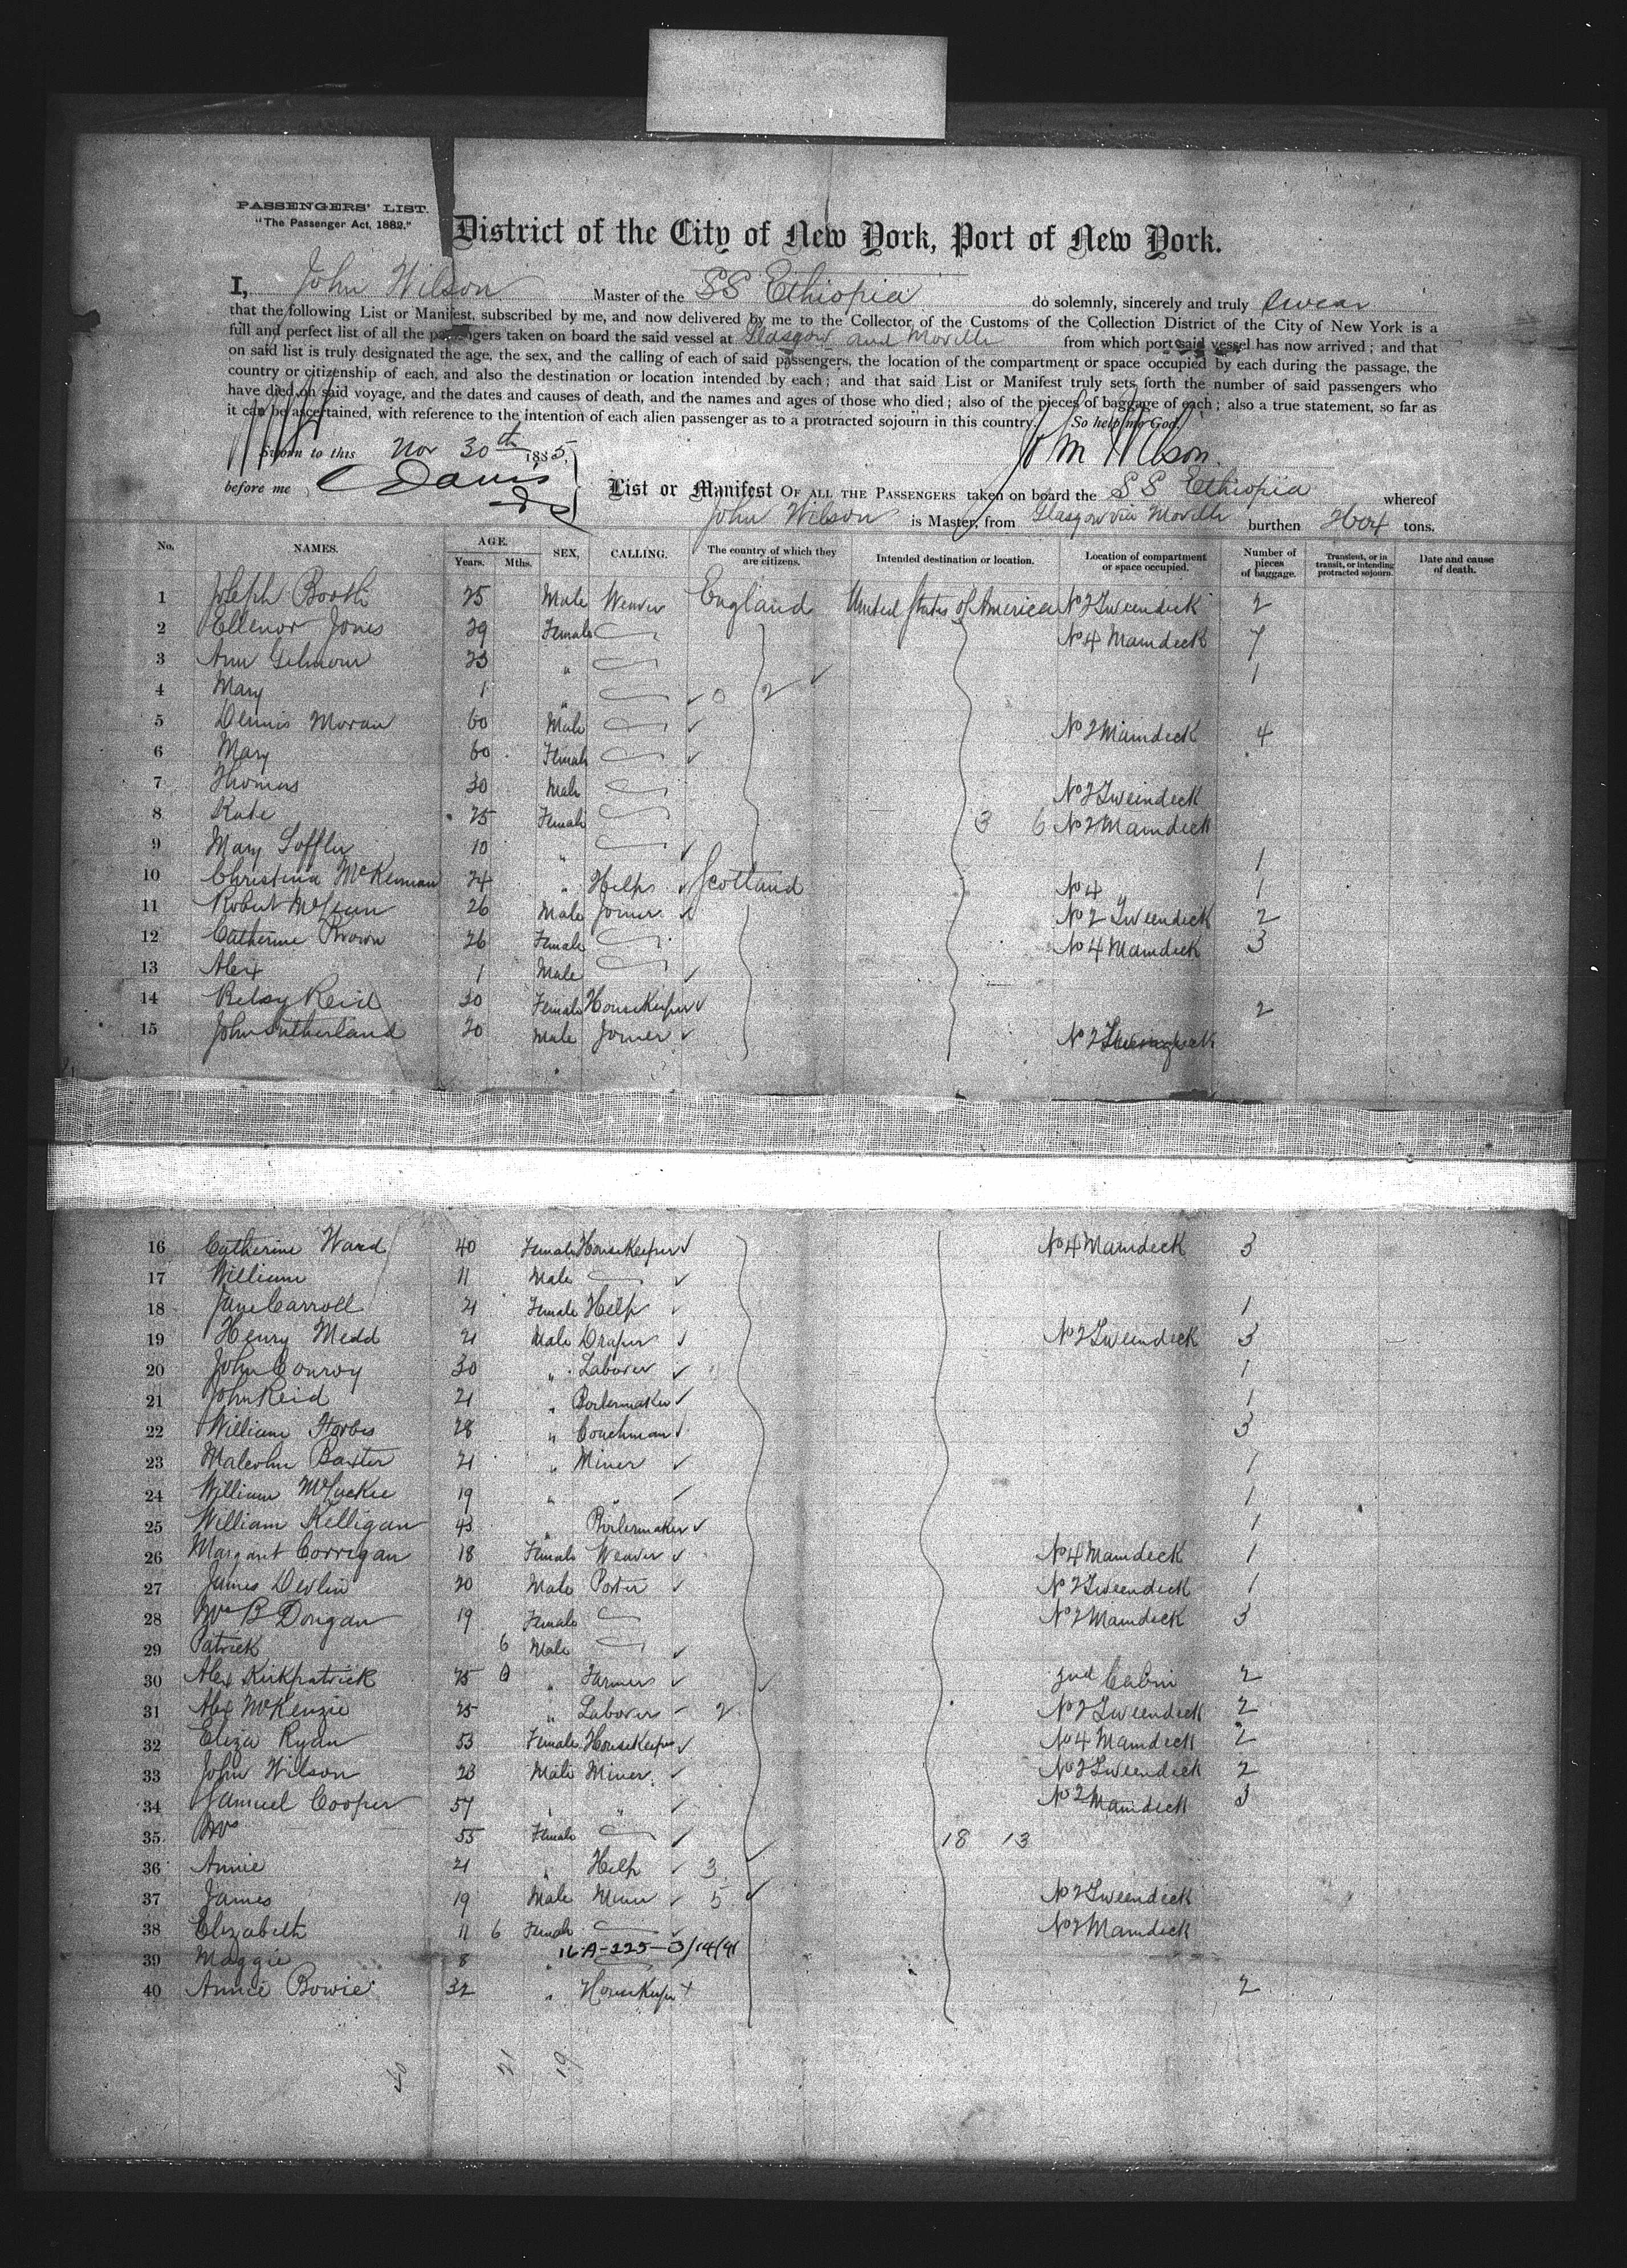 PASSENGERS' LIST.
"The Passenger Act, 1882."
District of the City of New York, Port of New York.
I, John Wilson Master of the SS Ethiopia do solemnly, sincerely and truly swear
that the following List or Manifest, subscribed by me, and now delivered by me to the Collector of the Customs of the Collection District of the City of New York is a
full and perfect list of all the passengers taken on board the said vessel at Glasgow and Moville from which port said vessel has now arrived; and that
on said list is truly designated the age, the sex, and the calling of each of said passengers, the location of the compartment or space occupied by each during the passage, the
country or citizenship of each, and also the destination or location intended by each; and that said List or Manifest truly sets forth the number of said passengers who
have died on said voyage, and the dates and causes of death, and the names and ages of those who died; also of the pieces of baggage of each; also a true statement, so far as
it can be ascertained, with reference to the intention of each alien passenger as to a protracted sojourn in this country. So help me God.
Sworn to this Nov 30th 1885, Jn Wilson.
before me C Davis
List or Manifest OF ALL THE PASSENGERS taken on board the SS Ethiopia whereof
John Wilson is Master, from Glasgow via Moville burthen tons.
No. NAMES. AGE. Years. Mths. SEX, CALLING. The country of which they are citizens. Intended destination or location. Location of compartment or space occupied. Number of pieces of baggage. Transient, or in transit, or intending protracted sojourn. Date and cause of death.
1 Joseph Booth 25 Male Weaver England United States of America No 2 Tweendeck 2
2 Ellenor Jones 29 Female No 4 Maindeck 7
3 Ann Gilmour 23 " 1
4 Mary 1 " 0 2
5 Dennis Moran 60 Male No 2 Maindeck 4
6 Mary 60 Female
7 Thomas 30 Male No 2 Tweendeck
8 Kate 25 Female 3 6 No 2 Maindeck
9 Mary Loffler 10 " 1
10 Christina McKennan 24 " Help Scotland No 4 " 1
11 Robert McLean 26 Male Joiner No 2 Tweendeck 2
12 Catherine Brown 26 Female No 4 Maindeck 3
13 Alex 1 Male
14 Betsy Reid 30 Female Housekeeper 2
15 John Sutherland 20 Male Joiner No 2 Tweendeck
16 Catherine Ward 40 Female Housekeeper No 4 Maindeck 3
17 William 11 Male
18 Jane Carroll 21 Female Help 1
19 Henry Medd 21 Male Draper No 2 Tweendeck 3
20 John Conroy 30 " Laborer 1
21 John Reid 21 " Boilermaker 1
22 William Forbes 28 " Coachman 3
23 Malcolm Baxter 21 " Miner 1
24 William McLuckie 19 " " 1
25 William Kelligan 43 " Boilermaker 1
26 Margaret Corrigan 18 Female Weaver No 4 Maindeck 1
27 James Devlin 20 Male Porter No 2 Tweendeck 1
28 Mrs B Dongan 19 Female No 2 Maindeck 3
29 Patrick 6 Male
30 Alex Kirkpatrick 25 " Farmer 2nd Cabin 2
31 Alex McKenzie 25 " Laborer 2 No 2 Tweendeck 2
32 Eliza Ryan 53 Female Housekeeper No 4 Maindeck 2
33 John Wilson 23 Male Miner No 2 Tweendeck 2
34 Samuel Cooper 57 " " No 2 Maindeck 3
35 Mrs 55 Female 18 13
36 Annie 21 " Help 3
37 James 19 Male Miner 5 No 2 Tweendeck
38 Elizabeth 11 6 Female No 2 Maindeck
39 Maggie 8 " 16-A-225-3/14/91
40 Annie Bowie 32 " Housekeeper 2
40 21 19